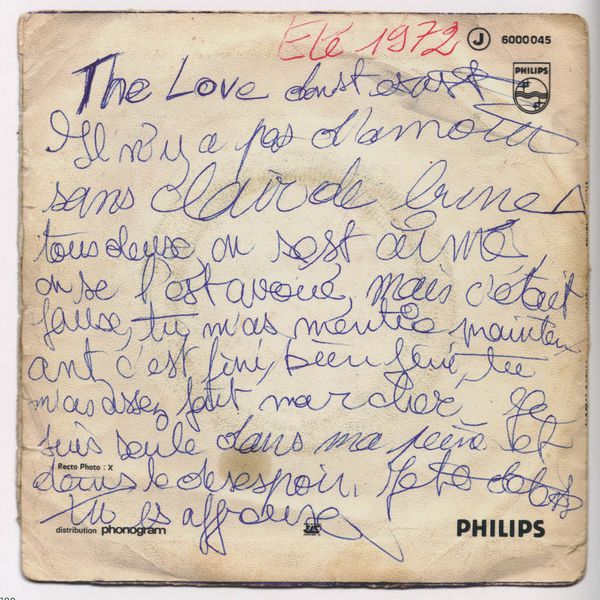 Eté 1972
J 6000045
PHILIPS
The Love donst exist
Il n'y a pas d'amour
sans clair de lune
tous deuse on sest aimé
on se l'est avoué, mais c'était
fause, tu m'as mentie mainten
ant c'est fini, bien fini, tu
m'as assez fait marcher, je
suis seule dans ma peine et
dans le desespoir.
Tu es affreuse
Recto Photo : X
distribution phonogram
PHILIPS
190